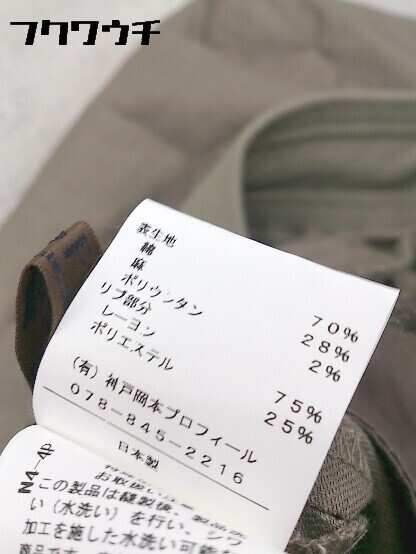 フクワウチ
表生地
綿 70%
麻 28%
ポリウンタン 2%
リブ部分
レーヨン 75%
ポリエステル 25%
(有)神戸岡本プロフィール
078-845-2216
日本製
NA-4P
この製品は縫製後、製品洗
い(水洗い)を行い、シワ
加工を施した水洗い可能な